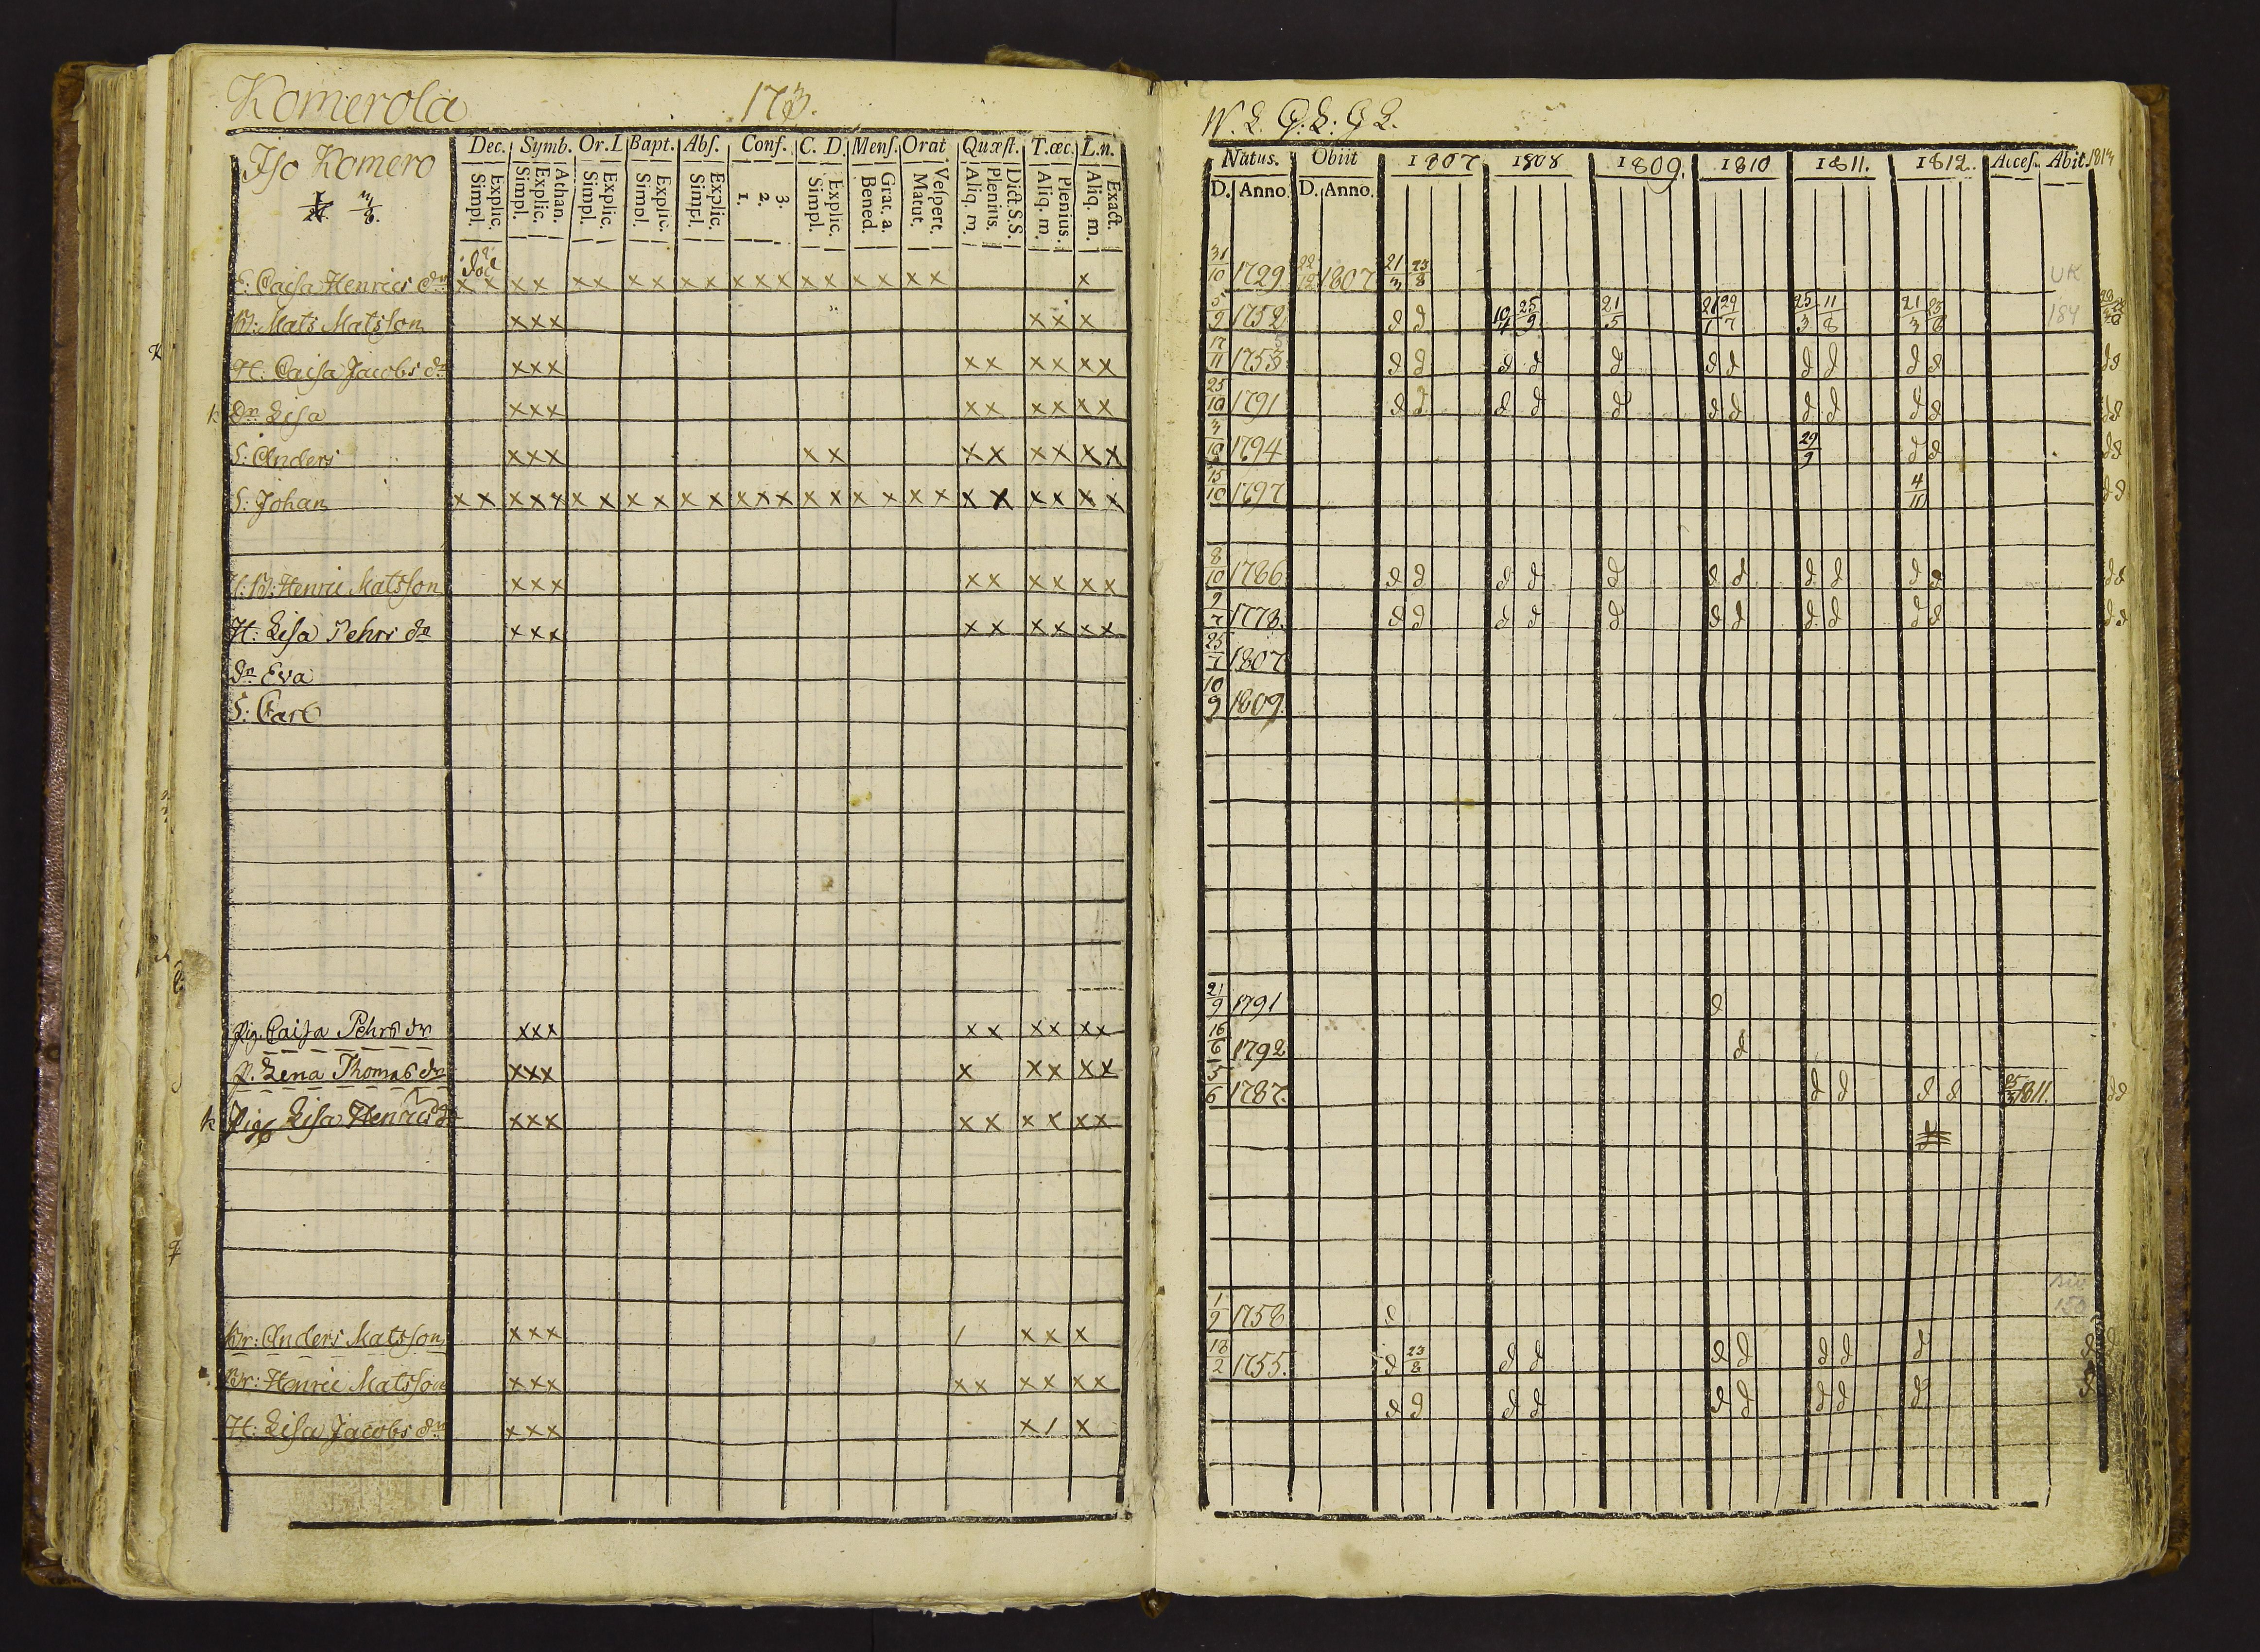 Komerola 173.
Iso Komero
Dec. Symb. Or. Bapt. Abs. Conf. C. D. Mens. Orat. Quæst. T.œc. L.n.
Explic. Simpl. Athan. Explic. Simpl. Explic. Simpl. Explic. Simpl. Explic. Simpl. 3. 2. 1. Explic. Simpl. Grat. a. Bened. Vespert. Matut. Dict. S.S. Plenius. Aliq. m. Plenius. Aliq. m. Exact. Aliq. m.
E: Caisa Henrics dr x x x x x x x x x x x x x x x x x x x x
B: Mats Matsson xxx x x x
H: Caisa Jacobs dr xxx x x x x x x
k Dr Lisa xxx x x x x x x
S: Anders xxx x x x x x x x x
S: Johan x x x x x x x x x x x x x x x x x x x x x x x x x x
B: Henric Matsson xxx x x x x x x
H: Lisa Pehrs dr xxx x x x x x x
Dr Eva
S: Carl
Pig. Caisa Pehrs dr xxx x x x x x x
p. Lena Thomas dr xxx x x x x x
k Pig Lisa Henrics dr xxx x x x x x x
Br: Anders Matsson xxx / x x x
Br: Henric Matsson xxx x x x x x x
H: Lisa Jacobs dr xxx x / x
Natus. Obiit 1807 1808 1809. 1810 1811. 1812. Acces. Abit. 1813
D. Anno. D. Anno.
31/10 1729 22/12 1807 21/3 23/8 UK
5/9 1752 d d 10/4 25/9 21/5 21/1 29/7 25/3 11/8 21/3 23/8 184
17/11 1753 d d d d d d d d d d d d d
25/10 1791 d d d d d d d d d d d d d
3/10 1794 29/9 d d d d
15/10 1797 4/10 d d
8/10 1786 d d d d d d d d d d d d d
9/7 1778. d d d d d d d d d d d d d
25/7 1807
10/9 1809
21/9 1791 d
16/6 1792 d
5/6 1787. d d d d 25/3 1811. d d
1/9 1758 d 150
18/2 1755. d 23/8 d d d d d d d d d
d d d d d d d d d d